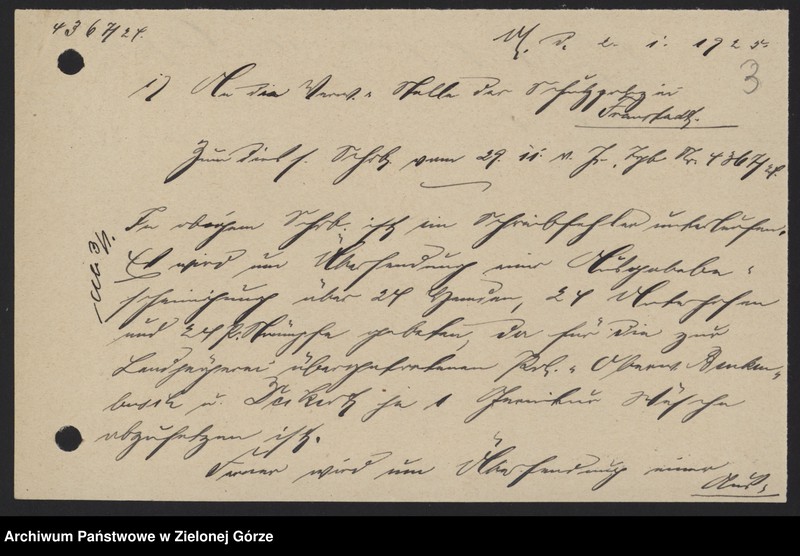 4367/24.
M. d. 2. 1. 1925
3
1) An die Verw.-Stelle der Schutzpolizei
Fraustadt.
Zum dies s. Schrb. vom 29. 11. v. Js., Tgb. Nr. 4367/24.
In obigem Schrb. ist ein Schreibfehler unterlaufen.
Es wird um Übersendung einer Ausgabebe-
scheinigung über 24 Hemden, 24 Unterhosen
und 24 P. Strümpfe gebeten, da für die zur
Landjägerei übergetretenen Pol.-Oberw.
u. je 1 Garnitur Wäsche
abzusetzen ist.
Ferner wird um Übersendung einer
Aus-
Archiwum Państwowe w Zielonej Górze